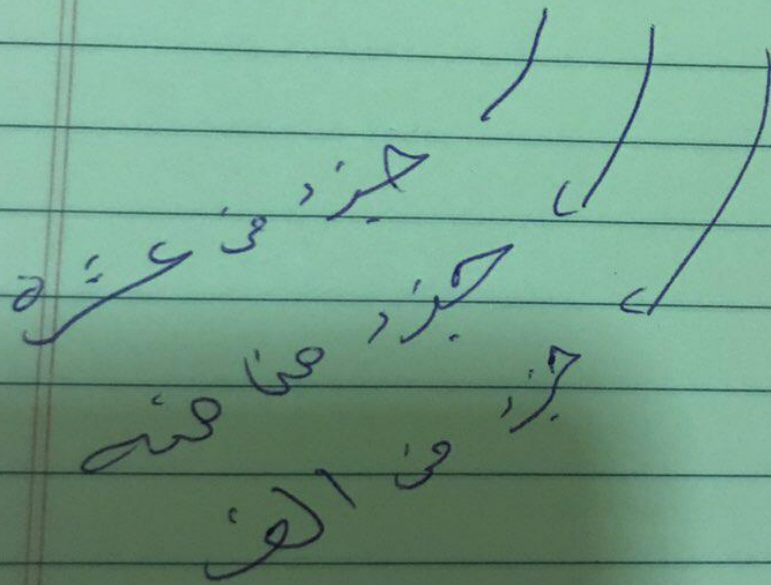 جزء من عشرة
جزء من مئة
جزء من الف